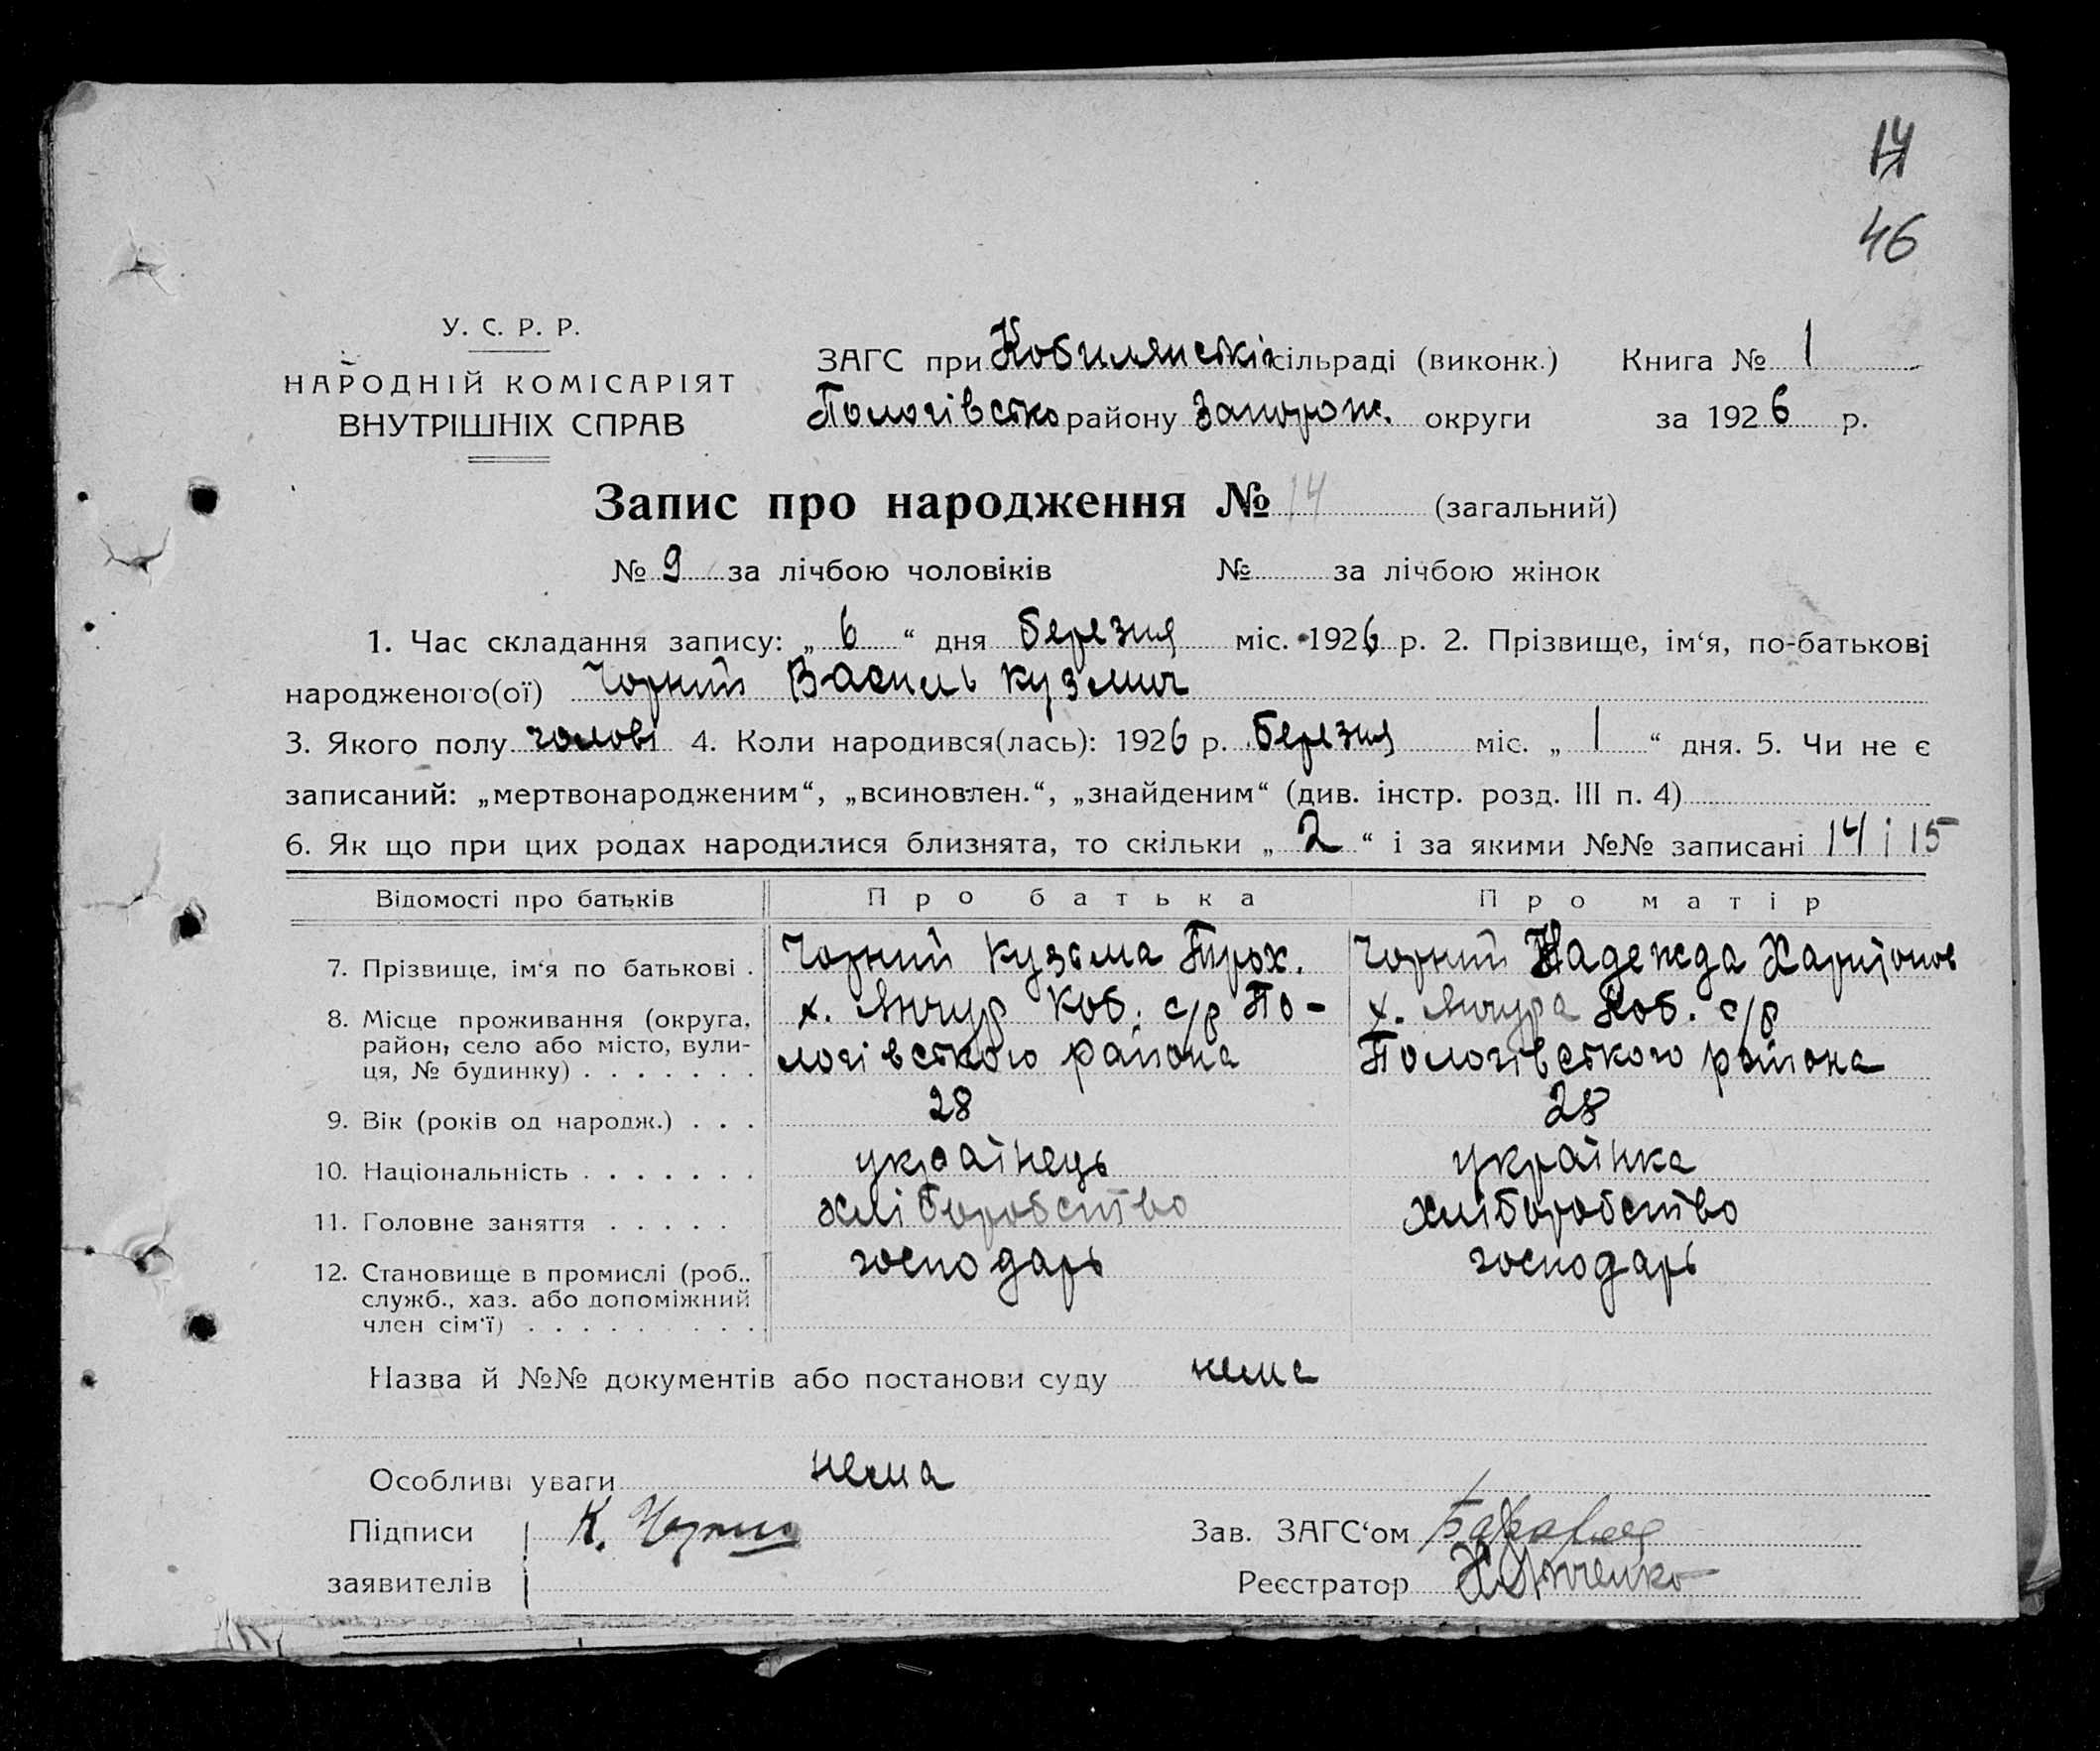 14
46
У. С. Р. Р.
НАРОДНІЙ КОМІСАРІЯТ
ВНУТРІШНІХ СПРАВ
ЗАГС при Кобилянскій сільраді (виконк.) Книга № 1
Пологівсько району Запорож. округи за 1926 р.
Запис про народження № 14 (загальний)
№ 9 за лічбою чоловіків № за лічбою жінок
1. Час складання запису: „ 6 “ дня березня міс. 1926 р. 2. Прізвище, ім‘я, по-батькові
народженого(ої) Чорний Василь Кузмич
3. Якого полу чолові 4. Коли народився(лась): 1926 р. березня міс. „ 1 “ дня. 5. Чи не є
записаний: „мертвонародженим“, „всиновлен.“, „знайденим“ (див. інстр. розд. III п. 4)
6. Як що при цих родах народилися близнята, то скільки „ 2 “ і за якими №№ записані 14 і 15
Відомості про батьків Про батька Про матір
7. Прізвище, ім‘я по батькові . Чорний Кузьма Трох. Чорний Надежда Харитонов
8. Місце проживання (округа, х. Янчур Коб. с/р По- х. Янчура Коб. с/р
район, село або місто, вули- логівського района Пологівського района
ця, № будинку) . . . . . . .
9. Вік (років од народж.) . . . 28 28
10. Національність . . . . . . . українець українка
11. Головне заняття . . . . . хліборобство хліборобство
12. Становище в промислі (роб.. господарь господарь
служб., хаз. або допоміжний
член сім‘ї) . . . . . . . . .
Назва й №№ документів або постанови суду нема
Особливі уваги нема
Підписи К. Чорний Зав. ЗАГС‘ом
заявителів Реєстратор